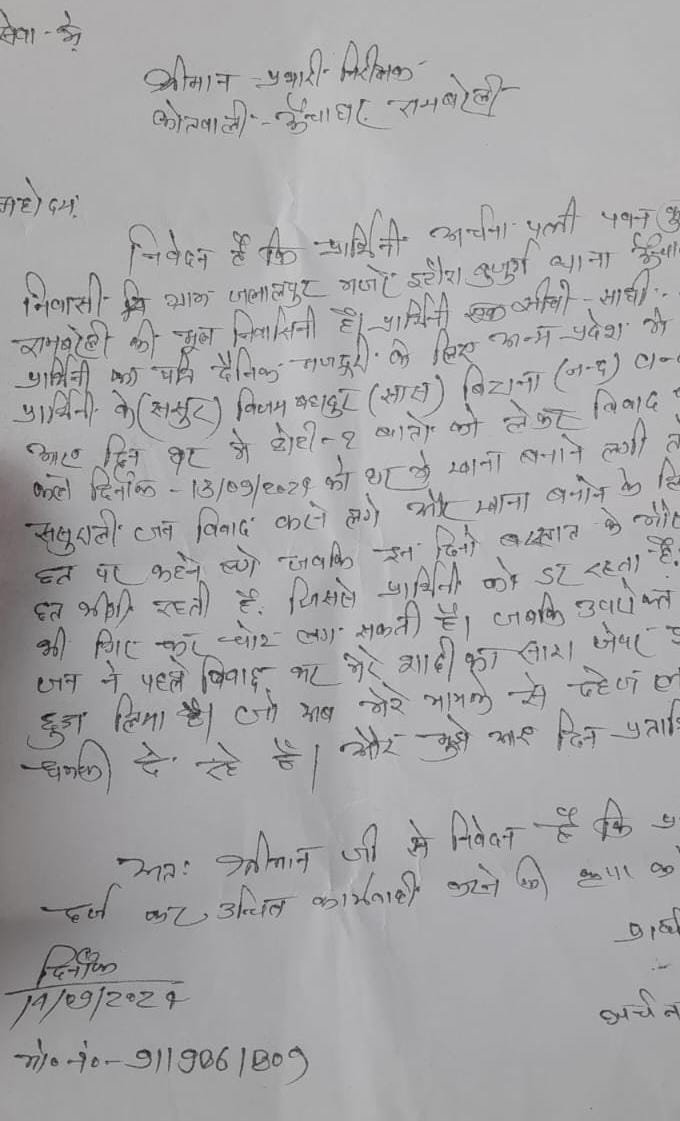 सेवा-में
श्रीमान प्रभारी निरीक्षक
कोतवाली-ऊँचाहार रायबरेली
महोदय,
निवेदन है कि प्रार्थिनी अर्चना पत्नी पवन
निवासी ग्राम जलालपुर मजरे इटौरा बुजुर्ग थाना
रायबरेली की मूल निवासिनी है। प्रार्थिनी एक सीधी-साधी
प्रार्थिनी का पति दैनिक मजदूरी के लिए अन्य प्रदेश मे
प्रार्थिनी के (ससुर) विजय बहादुर (सास) बिटाना (नन्द)
आए दिन घर मे छोटी-2 बातो को लेकर विवाद
कल दिनांक -13/09/2024 को घर मे खाना बनाने लगी
ससुराली जन विवाद करने लगे और खाना बनाने के
छत पर कहने लगे जबकि इन दिनो बरसात के
छत भीगी रहती है. जिससे प्रार्थिनी को डर रहता है.
भी गिर कर चोट लग सकती है। जबकि उपरोक्त
जन ने पहले विवाद कर मेरे शादी का सारा जेवर
छुड़ा लिया है। जो अब मेरे मायके से दहेज
धमकी दे रहे है। और मुझे आए दिन
अतः श्रीमान जी से निवेदन है कि
दर्ज कर उचित कार्यवाही करने की कृपा
दिनाँक
14/09/2024
मो० नं०-9119061809